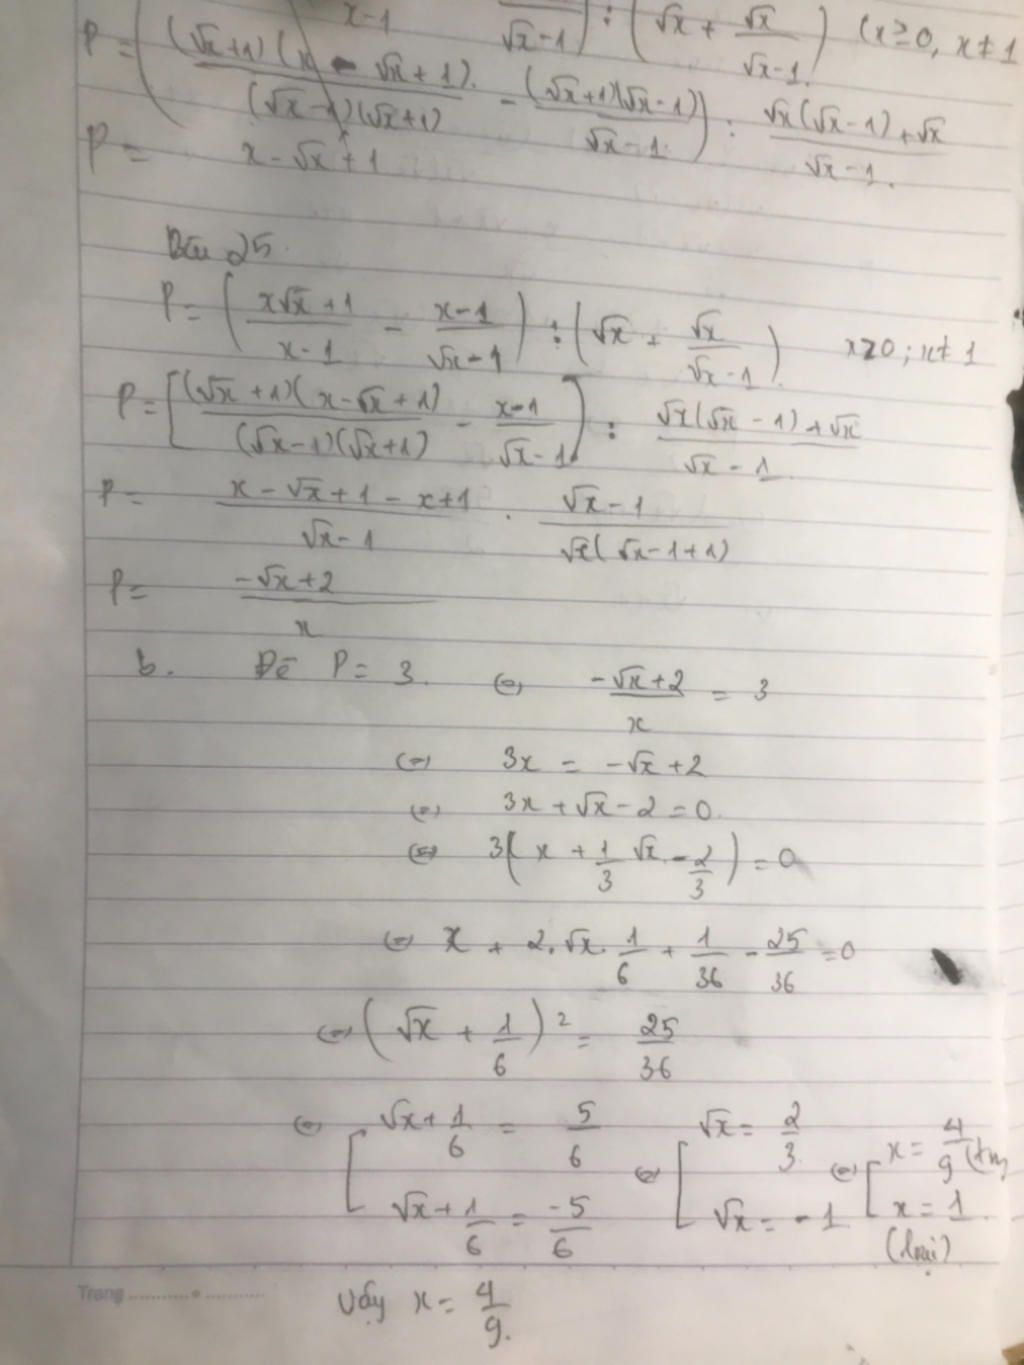 x-1 √x-1) : (√x + √x/√x-1) (x≥0, x≠1
P = ((√x+1)(x - √x+1)/(√x-1)(√x+1) - (√x+1)(√x-1)/√x-1) : √x(√x-1)+√x/√x-1.
P = x-√x+1
Bài 25.
P = (x√x+1/x-1 - x-1/√x-1) : (√x + √x/√x-1). x≥0; x≠1
P = [(√x+1)(x-√x+1)/(√x-1)(√x+1) - x-1/√x-1] : √x(√x-1)+√x/√x-1.
P = x-√x+1-x+1/√x-1 . √x-1/√x(√x-1+1)
P = -√x+2/x
b. Để P = 3. (=) -√x+2/x = 3
(=) 3x = -√x+2
(=) 3x+√x-2=0.
(=) 3(x + 1/3 √x - 2/3) = 0
(=) x + 2.√x.1/6 + 1/36 - 25/36 =0
(=) (√x + 1/6)² = 25/36
(=) [√x+1/6 = 5/6 (=) [√x = 2/3. (=) [x = 4/9 (tm
√x+1/6 = -5/6 √x = -1 x = 1.
(loại)
Trang
Vậy x = 4/9.